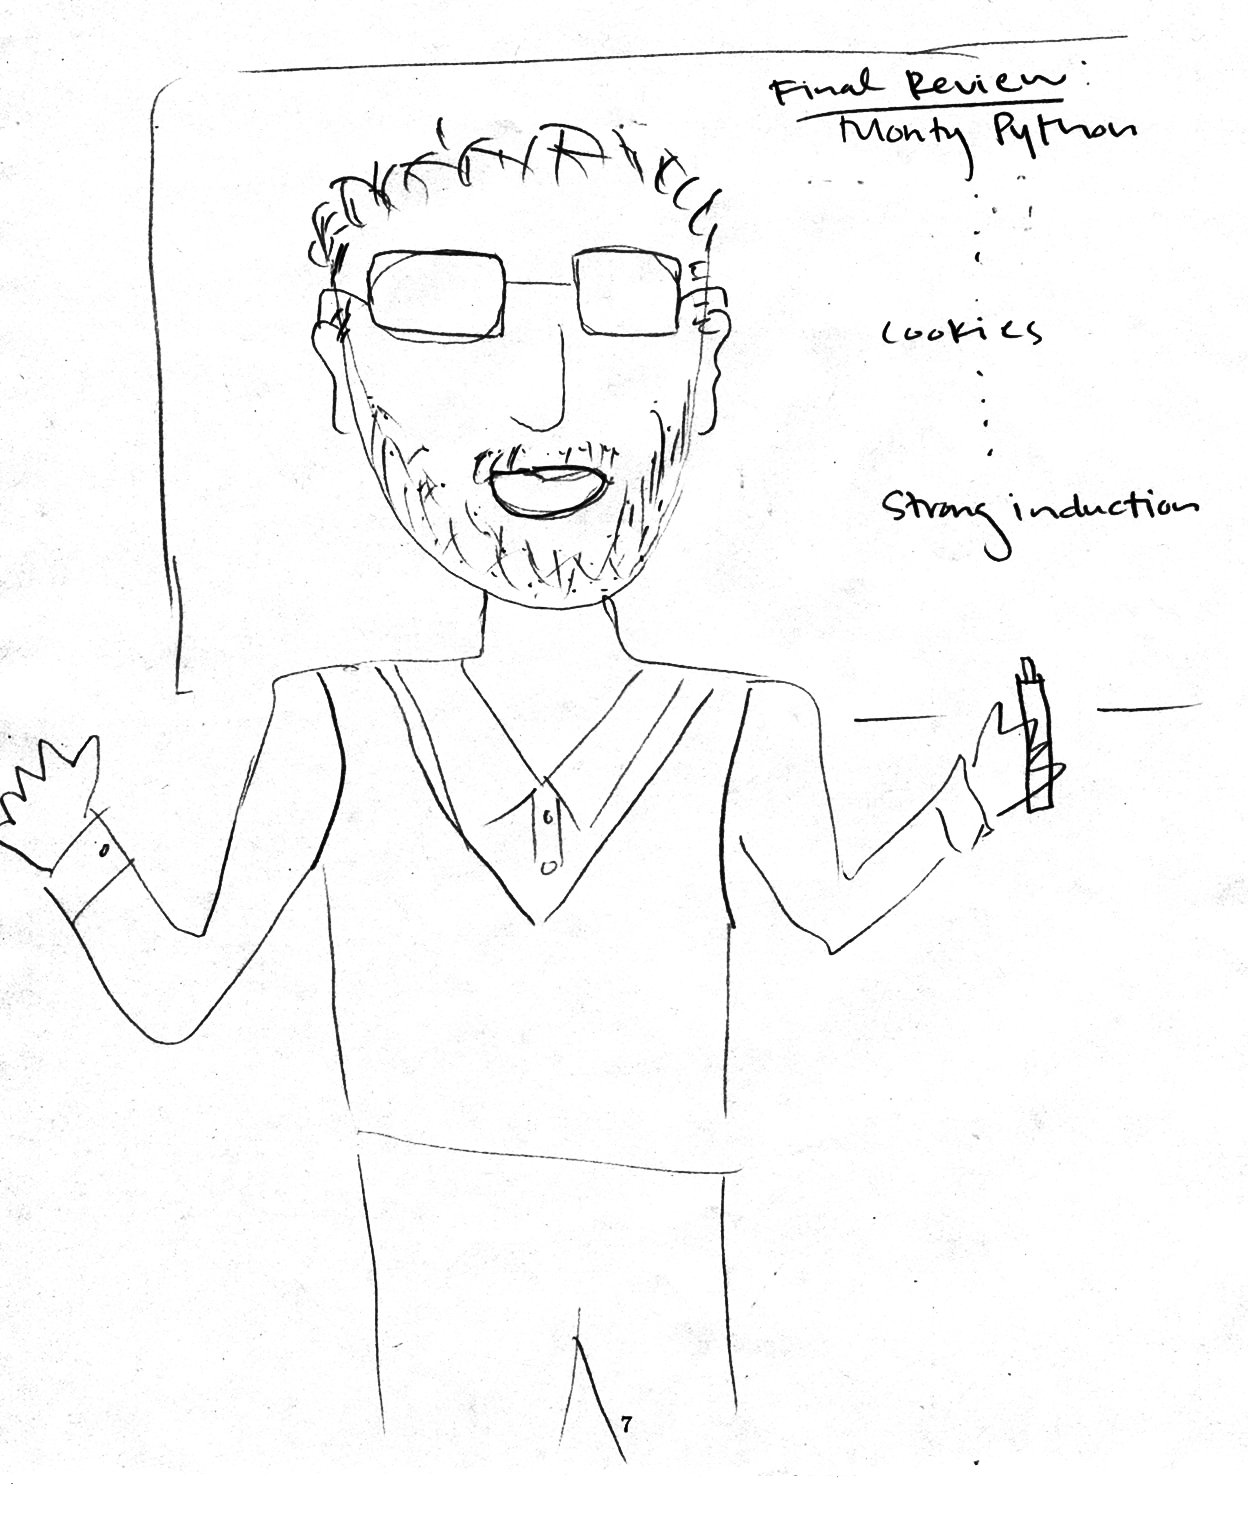 Final Review:
Monty Python
cookies
Strong induction
7